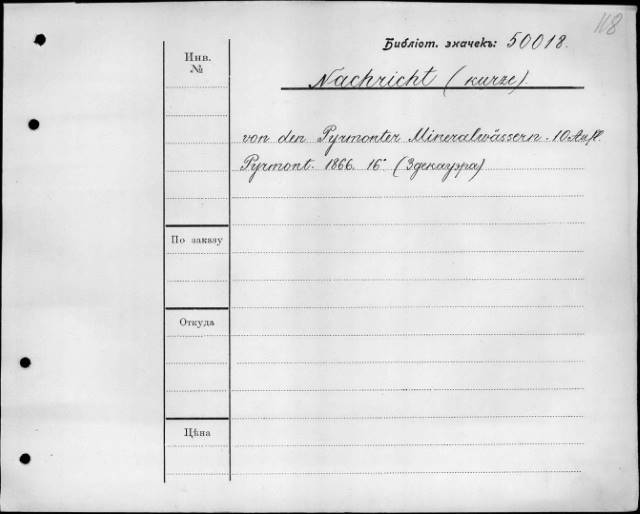 118
Библіот. значекъ: 50018.
Инв.
№
Nachricht (kurze)
von den Pyrmonter Mineralwässern. 10 Aufl.
Pyrmont. 1866. 16° (Здекауэра)
По заказу
Откуда
Цѣна